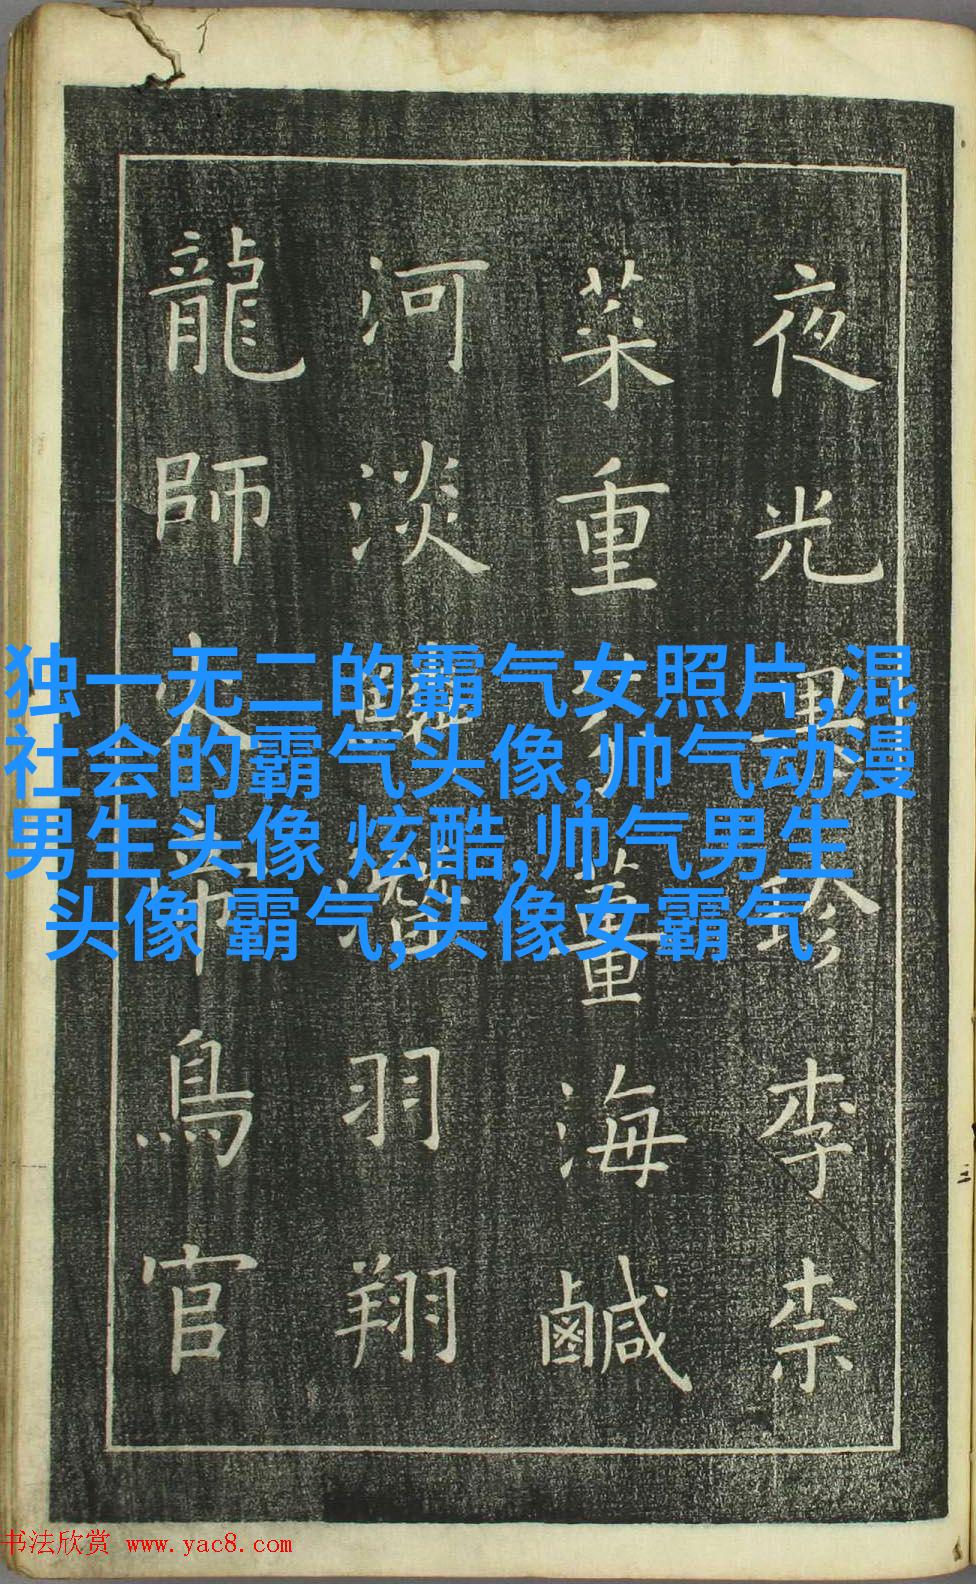 夜光果珍李柰
菜重芥薑海鹹
河淡鱗潛羽翔
龍師火帝鳥官
独一无二的霸气女照片,混
社会的霸气头像,帅气动漫
男生头像 炫酷,帅气男生
头像 霸气,头像女霸气
书法欣赏 www.yac8.com